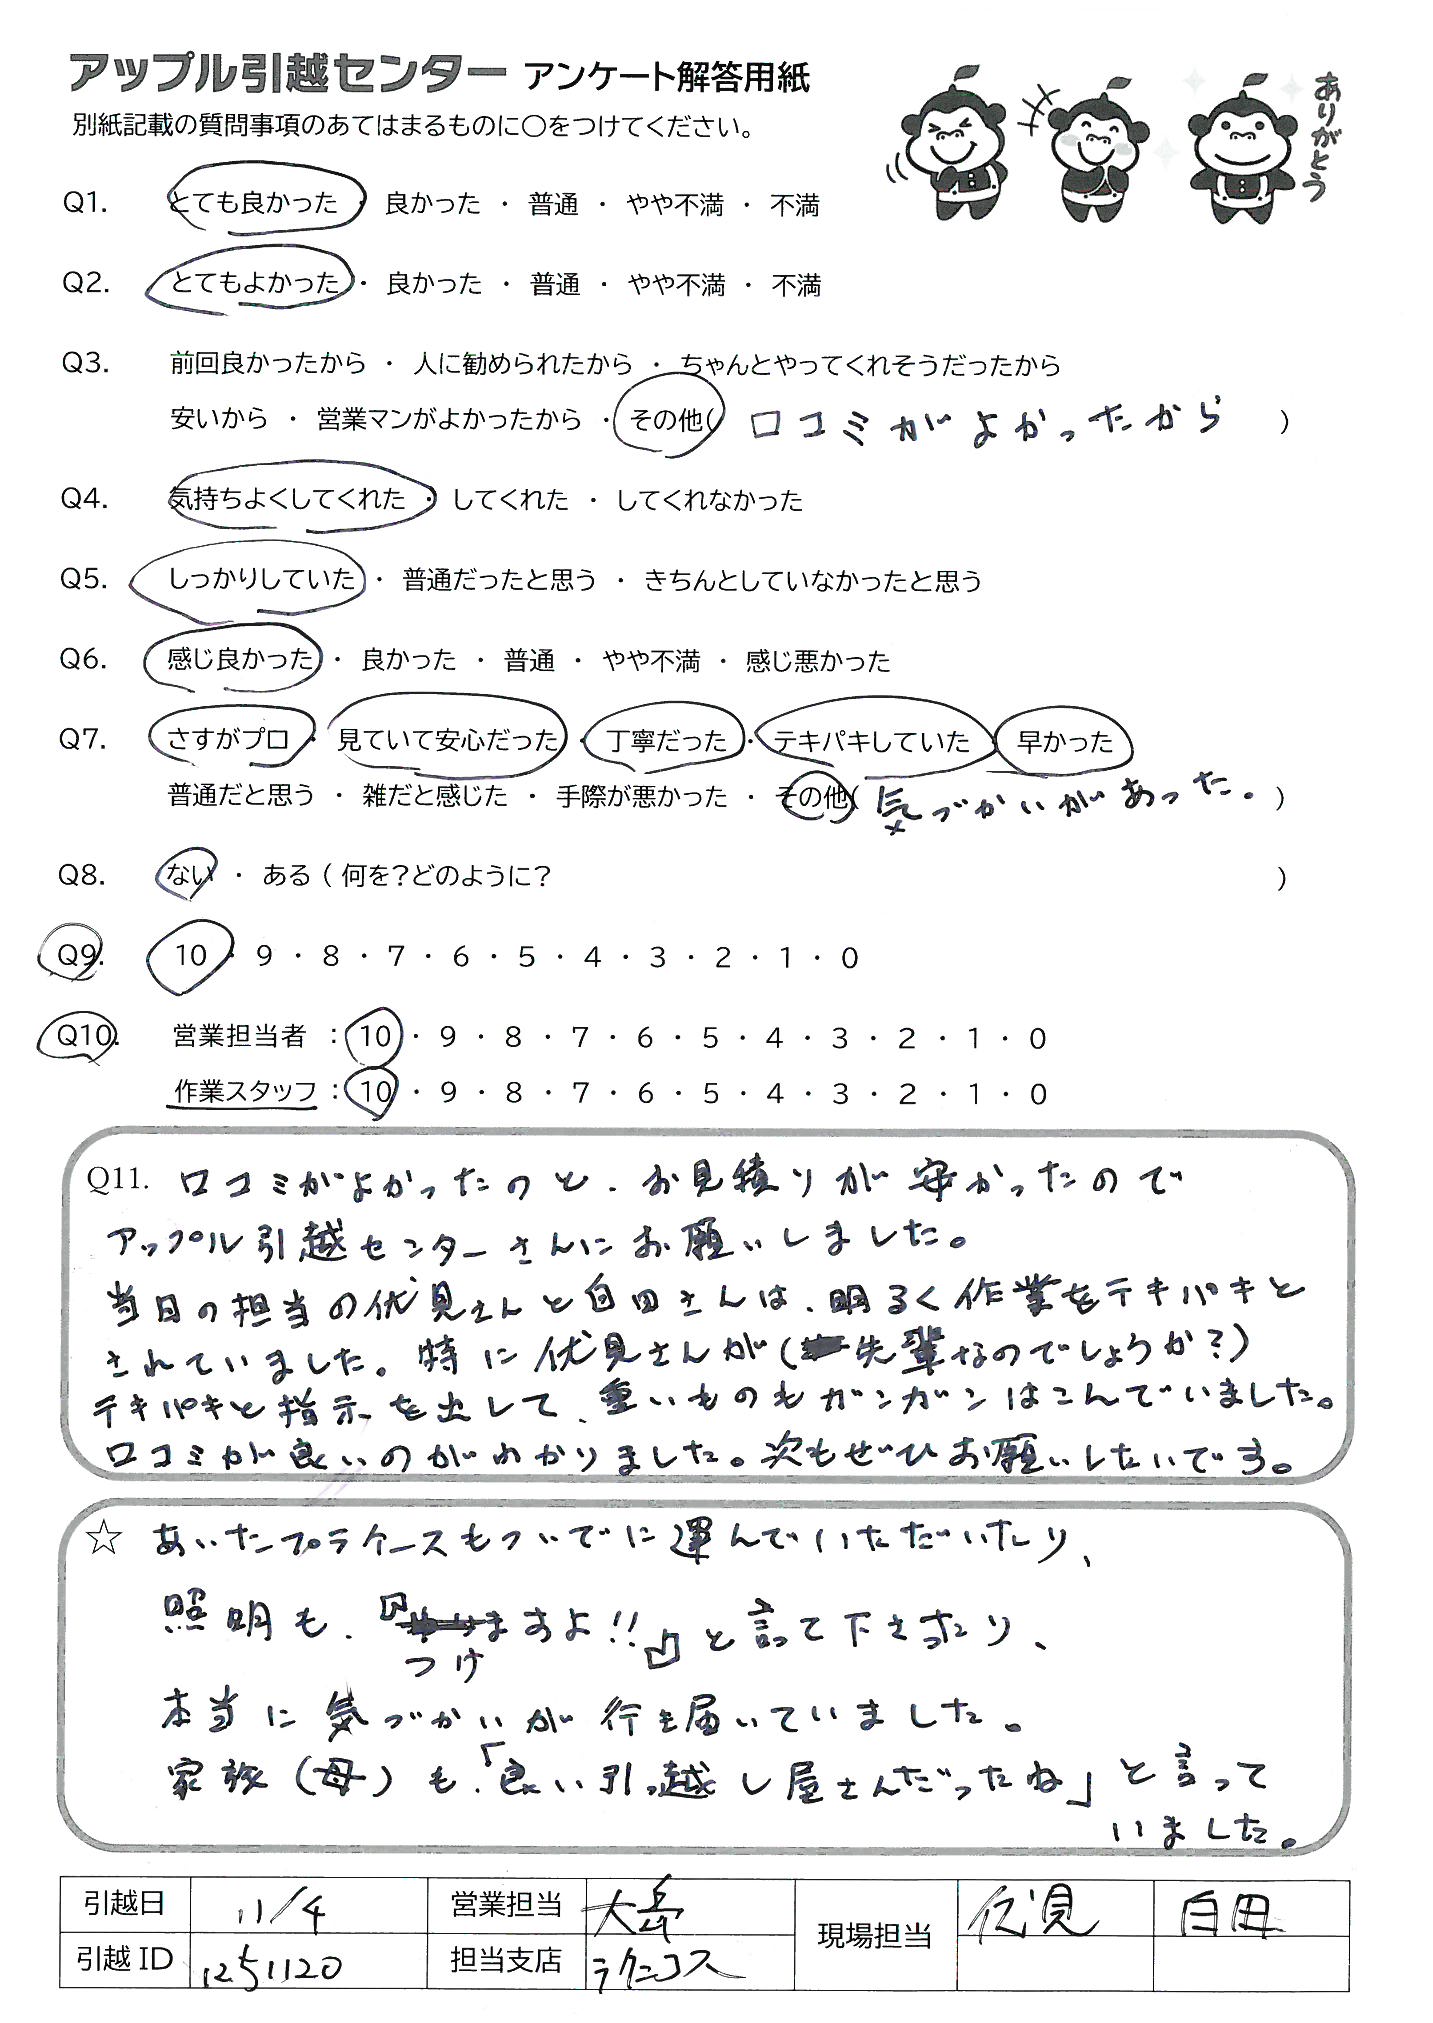 アップル引越センター アンケート解答用紙
別紙記載の質問事項のあてはまるものに○をつけてください。
ありがとう
Q1. とても良かった ・ 良かった ・ 普通 ・ やや不満 ・ 不満
Q2. とてもよかった ・ 良かった ・ 普通 ・ やや不満 ・ 不満
Q3. 前回良かったから ・ 人に勧められたから ・ ちゃんとやってくれそうだったから
安いから ・ 営業マンがよかったから ・ その他( 口コミがよかったから )
Q4. 気持ちよくしてくれた ・ してくれた ・ してくれなかった
Q5. しっかりしていた ・ 普通だったと思う ・ きちんとしていなかったと思う
Q6. 感じ良かった ・ 良かった ・ 普通 ・ やや不満 ・ 感じ悪かった
Q7. さすがプロ ・ 見ていて安心だった ・ 丁寧だった ・ テキパキしていた ・ 早かった
普通だと思う ・ 雑だと感じた ・ 手際が悪かった ・ その他( 気づかいがあった。 )
Q8. ない ・ ある ( 何を?どのように? )
Q9. 10 ・ 9 ・ 8 ・ 7 ・ 6 ・ 5 ・ 4 ・ 3 ・ 2 ・ 1 ・ 0
Q10. 営業担当者 : 10 ・ 9 ・ 8 ・ 7 ・ 6 ・ 5 ・ 4 ・ 3 ・ 2 ・ 1 ・ 0
作業スタッフ : 10 ・ 9 ・ 8 ・ 7 ・ 6 ・ 5 ・ 4 ・ 3 ・ 2 ・ 1 ・ 0
Q11. 口コミがよかったのと、お見積りが安かったので
アップル引越センターさんにお願いしました。
当日の担当の伏見さんと白田さんは、明るく作業をテキパキと
されていました。特に伏見さんが(先輩なのでしょうか?)
テキパキと指示を出して、重いものもガンガンはこんでいました。
口コミが良いのがわかりました。次もぜひお願いしたいです。
☆ あいたプラケースもついでに運んでいただいたり、
照明も、『つけますよ!!』と言って下さったり、
本当に気づかいが行き届いていました。
家族(母)も、「良い引っ越し屋さんだったね」と言って
いました。
引越日 11/4 営業担当 大岳 現場担当 伏見 白田
引越ID 1251120 担当支店 ラクニコス